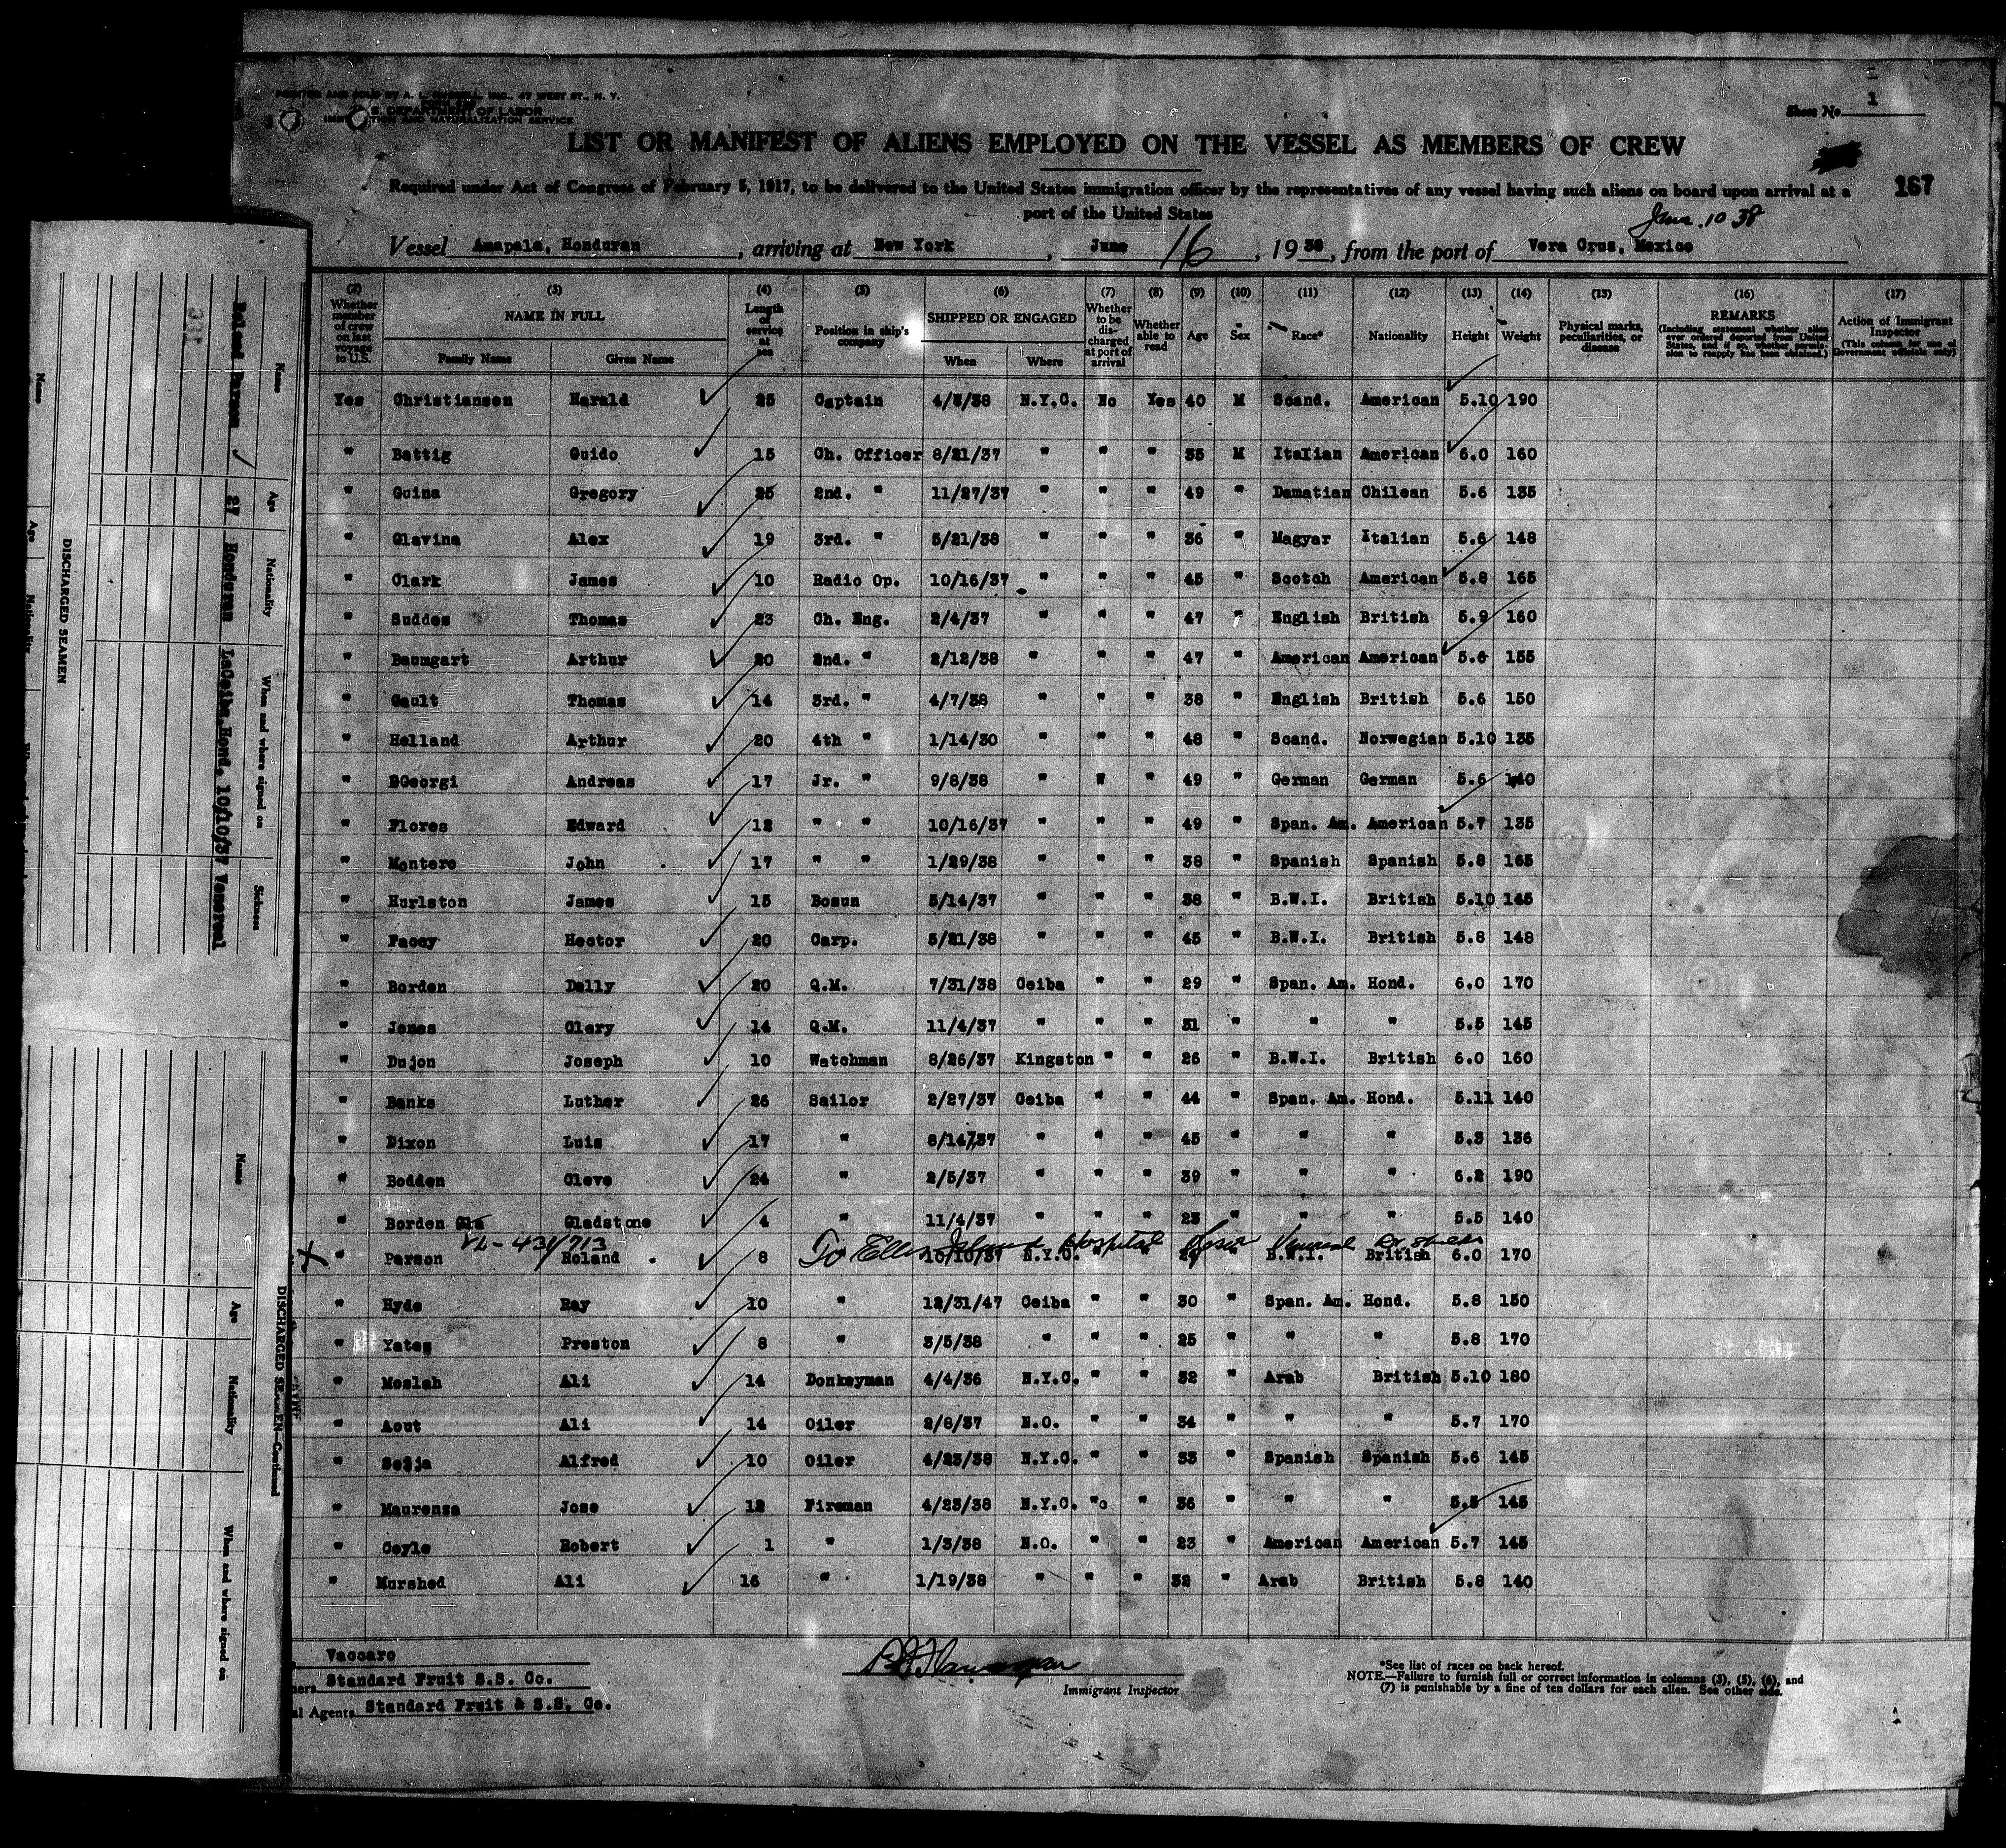 PRINTED AND SOLD BY A. L. INC., 47 WEST ST., N. Y.
S. DEPARTMENT OF LABOR
IMMIGRATION AND NATURALIZATION SERVICE
Sheet No. 1
LIST OR MANIFEST OF ALIENS EMPLOYED ON THE VESSEL AS MEMBERS OF CREW
167
Required under Act of Congress of February 5, 1917, to be delivered to the United States immigration officer by the representatives of any vessel having such aliens on board upon arrival at a
port of the United States
June 10 38
Vessel Amapala, Honduran, arriving at New York, June 16, 1938, from the port of Vera Cruz, Mexico
(2) Whether member of crew on last voyage to U.S. (3) NAME IN FULL Family Name Given Name (4) Length of service at sea (5) Position in ship's company (6) SHIPPED OR ENGAGED When Where (7) Whether to be discharged at port of arrival (8) Whether able to read (9) Age (10) Sex (11) Race* (12) Nationality (13) Height (14) Weight (15) Physical marks, peculiarities, or disease (16) REMARKS (Including statement whether alien ever ordered deported from United States, and if so, whether permission to reapply has been obtained.) (17) Action of Immigrant Inspector (This column for use of Government officials only)
Yes Christiansen Harald 25 Captain 4/5/38 N.Y.C. No Yes 40 M Scand. American 5.10 190
" Battig Guido 15 Ch. Officer 8/21/37 " " " 35 M Italian American 6.0 160
" Guina Gregory 25 2nd. " 11/27/37 " " " 49 " Damatian Chilean 5.6 135
" Glavina Alex 19 3rd. " 5/21/38 " " " 36 " Magyar Italian 5.6 148
" Clark James 10 Radio Op. 10/16/37 " " " 45 " Scotch American 5.8 165
" Suddes Thomas 23 Ch. Eng. 2/4/37 " " " 47 " English British 5.9 160
" Baumgart Arthur 20 2nd. " 2/12/38 " " " 47 " American American 5.6 155
" Gault Thomas 14 3rd. " 4/7/38 " " " 38 " English British 5.6 150
" Helland Arthur 20 4th " 1/14/30 " " " 48 " Scand. Norwegian 5.10 135
" SGeorgi Andreas 17 Jr. " 9/8/38 " " " 49 " German German 5.6 140
" Flores Edward 12 " " 10/16/37 " " " 49 " Span. Am. American 5.7 135
" Montero John 17 " " 1/29/38 " " " 38 " Spanish Spanish 5.8 165
" Hurlston James 15 Bosun 5/14/37 " " " 38 " B.W.I. British 5.10 145
" Facey Hector 20 Carp. 5/21/38 " " " 45 " B.W.I. British 5.8 148
" Borden Dally 20 Q.M. 7/31/38 Ceiba " " 29 " Span. Am. Hond. 6.0 170
" Jones Clery 14 Q.M. 11/4/37 " " " 31 " " " 5.5 145
" Dujon Joseph 10 Watchman 8/26/37 Kingston " " 26 " B.W.I. British 6.0 160
" Banks Luther 26 Sailor 2/27/37 Ceiba " " 44 " Span. Am. Hond. 5.11 140
" Dixon Luis 17 " 8/14/37 " " " 45 " " " 5.3 136
" Bodden Cleve 24 " 2/5/37 " " " 39 " " " 6.2 190
" Borden Gla Gladstone 4 " 11/4/37 " " " 23 " " " 5.5 140
VL-431/713 To Ellis Island Hospital Venereal
X " Parson Roland 8 10/10/37 N.Y.C. " " 27 " B.W.I. British 6.0 170
" Hyde Ray 10 " 12/31/47 Ceiba " " 30 " Span. Am. Hond. 5.8 150
" Yates Preston 8 " 3/5/38 " " " 25 " " " 5.8 170
" Moslah Ali 14 Donkeyman 4/4/36 N.Y.C. " " 32 " Arab British 5.10 180
" Aout Ali 14 Oiler 2/8/37 N.O. " " 34 " " " 5.7 170
" Seija Alfred 10 Oiler 4/23/38 N.Y.C. " " 33 " Spanish Spanish 5.6 145
" Maurensa Jose 12 Fireman 4/23/38 N.Y.C. " " 36 " " " 5.5 145
" Coyle Robert 1 " 1/3/38 N.O. " " 23 " American American 5.7 145
" Murshed Ali 16 " 1/19/38 " " " 32 " Arab British 5.8 140
Vaccaro
Standard Fruit S.S. Co.
Agents Standard Fruit & S.S. Co.
Immigrant Inspector
*See list of races on back hereof.
NOTE.—Failure to furnish full or correct information in columns (3), (5), (6), and
(7) is punishable by a fine of ten dollars for each alien. See other side.
DISCHARGED SEAMEN
Name Age Nationality When and where signed on Sickness
Roland Parson 27 Honduran LaCeiba, Hond. 10/10/37 Venereal
331
Name Age Nationality
DISCHARGED SEAMEN—Continued
Name Age Nationality When and where signed on